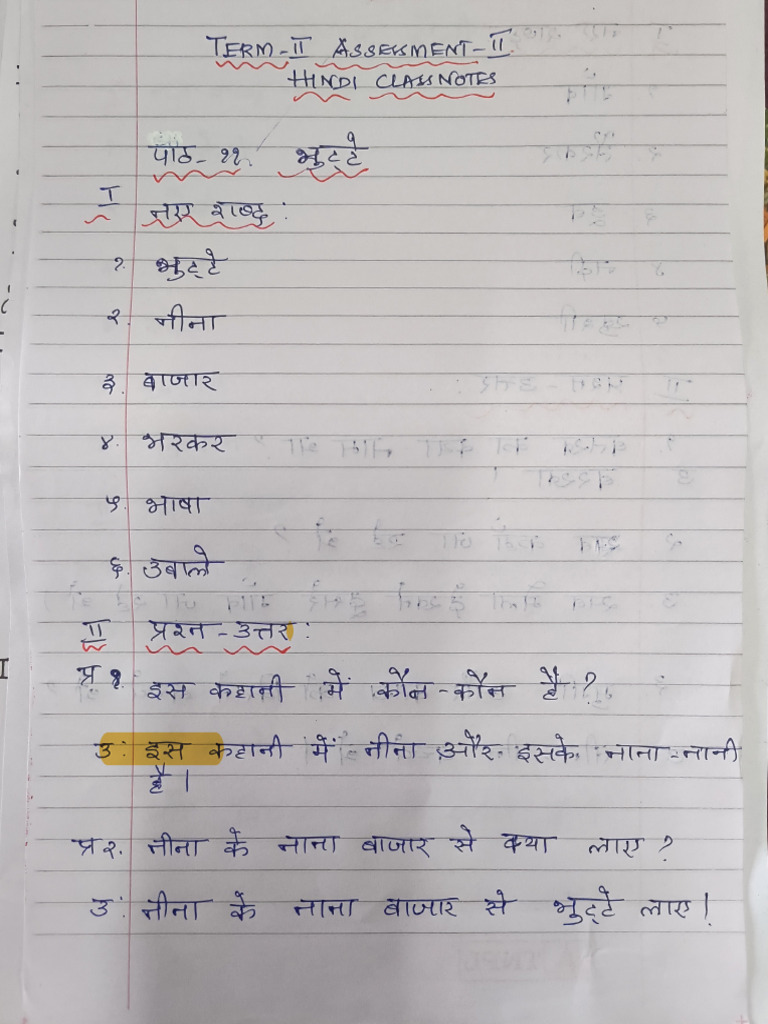 TERM-II ASSESSMENT-II
HINDI CLASSNOTES
पाठ- ११. भुट्टे
I नए शब्द :
१. भुट्टे
२. नीना
३. बाजार
४. भरकर
५. भाषा
६. उबाले
II प्रश्न-उत्तर :
प्र १. इस कहानी में कौन-कौन है ?
उ: इस कहानी में नीना और इसके नाना-नानी
है ।
प्र २. नीना के नाना बाजार से क्या लाए ?
उ: नीना के नाना बाजार से भुट्टे लाए।